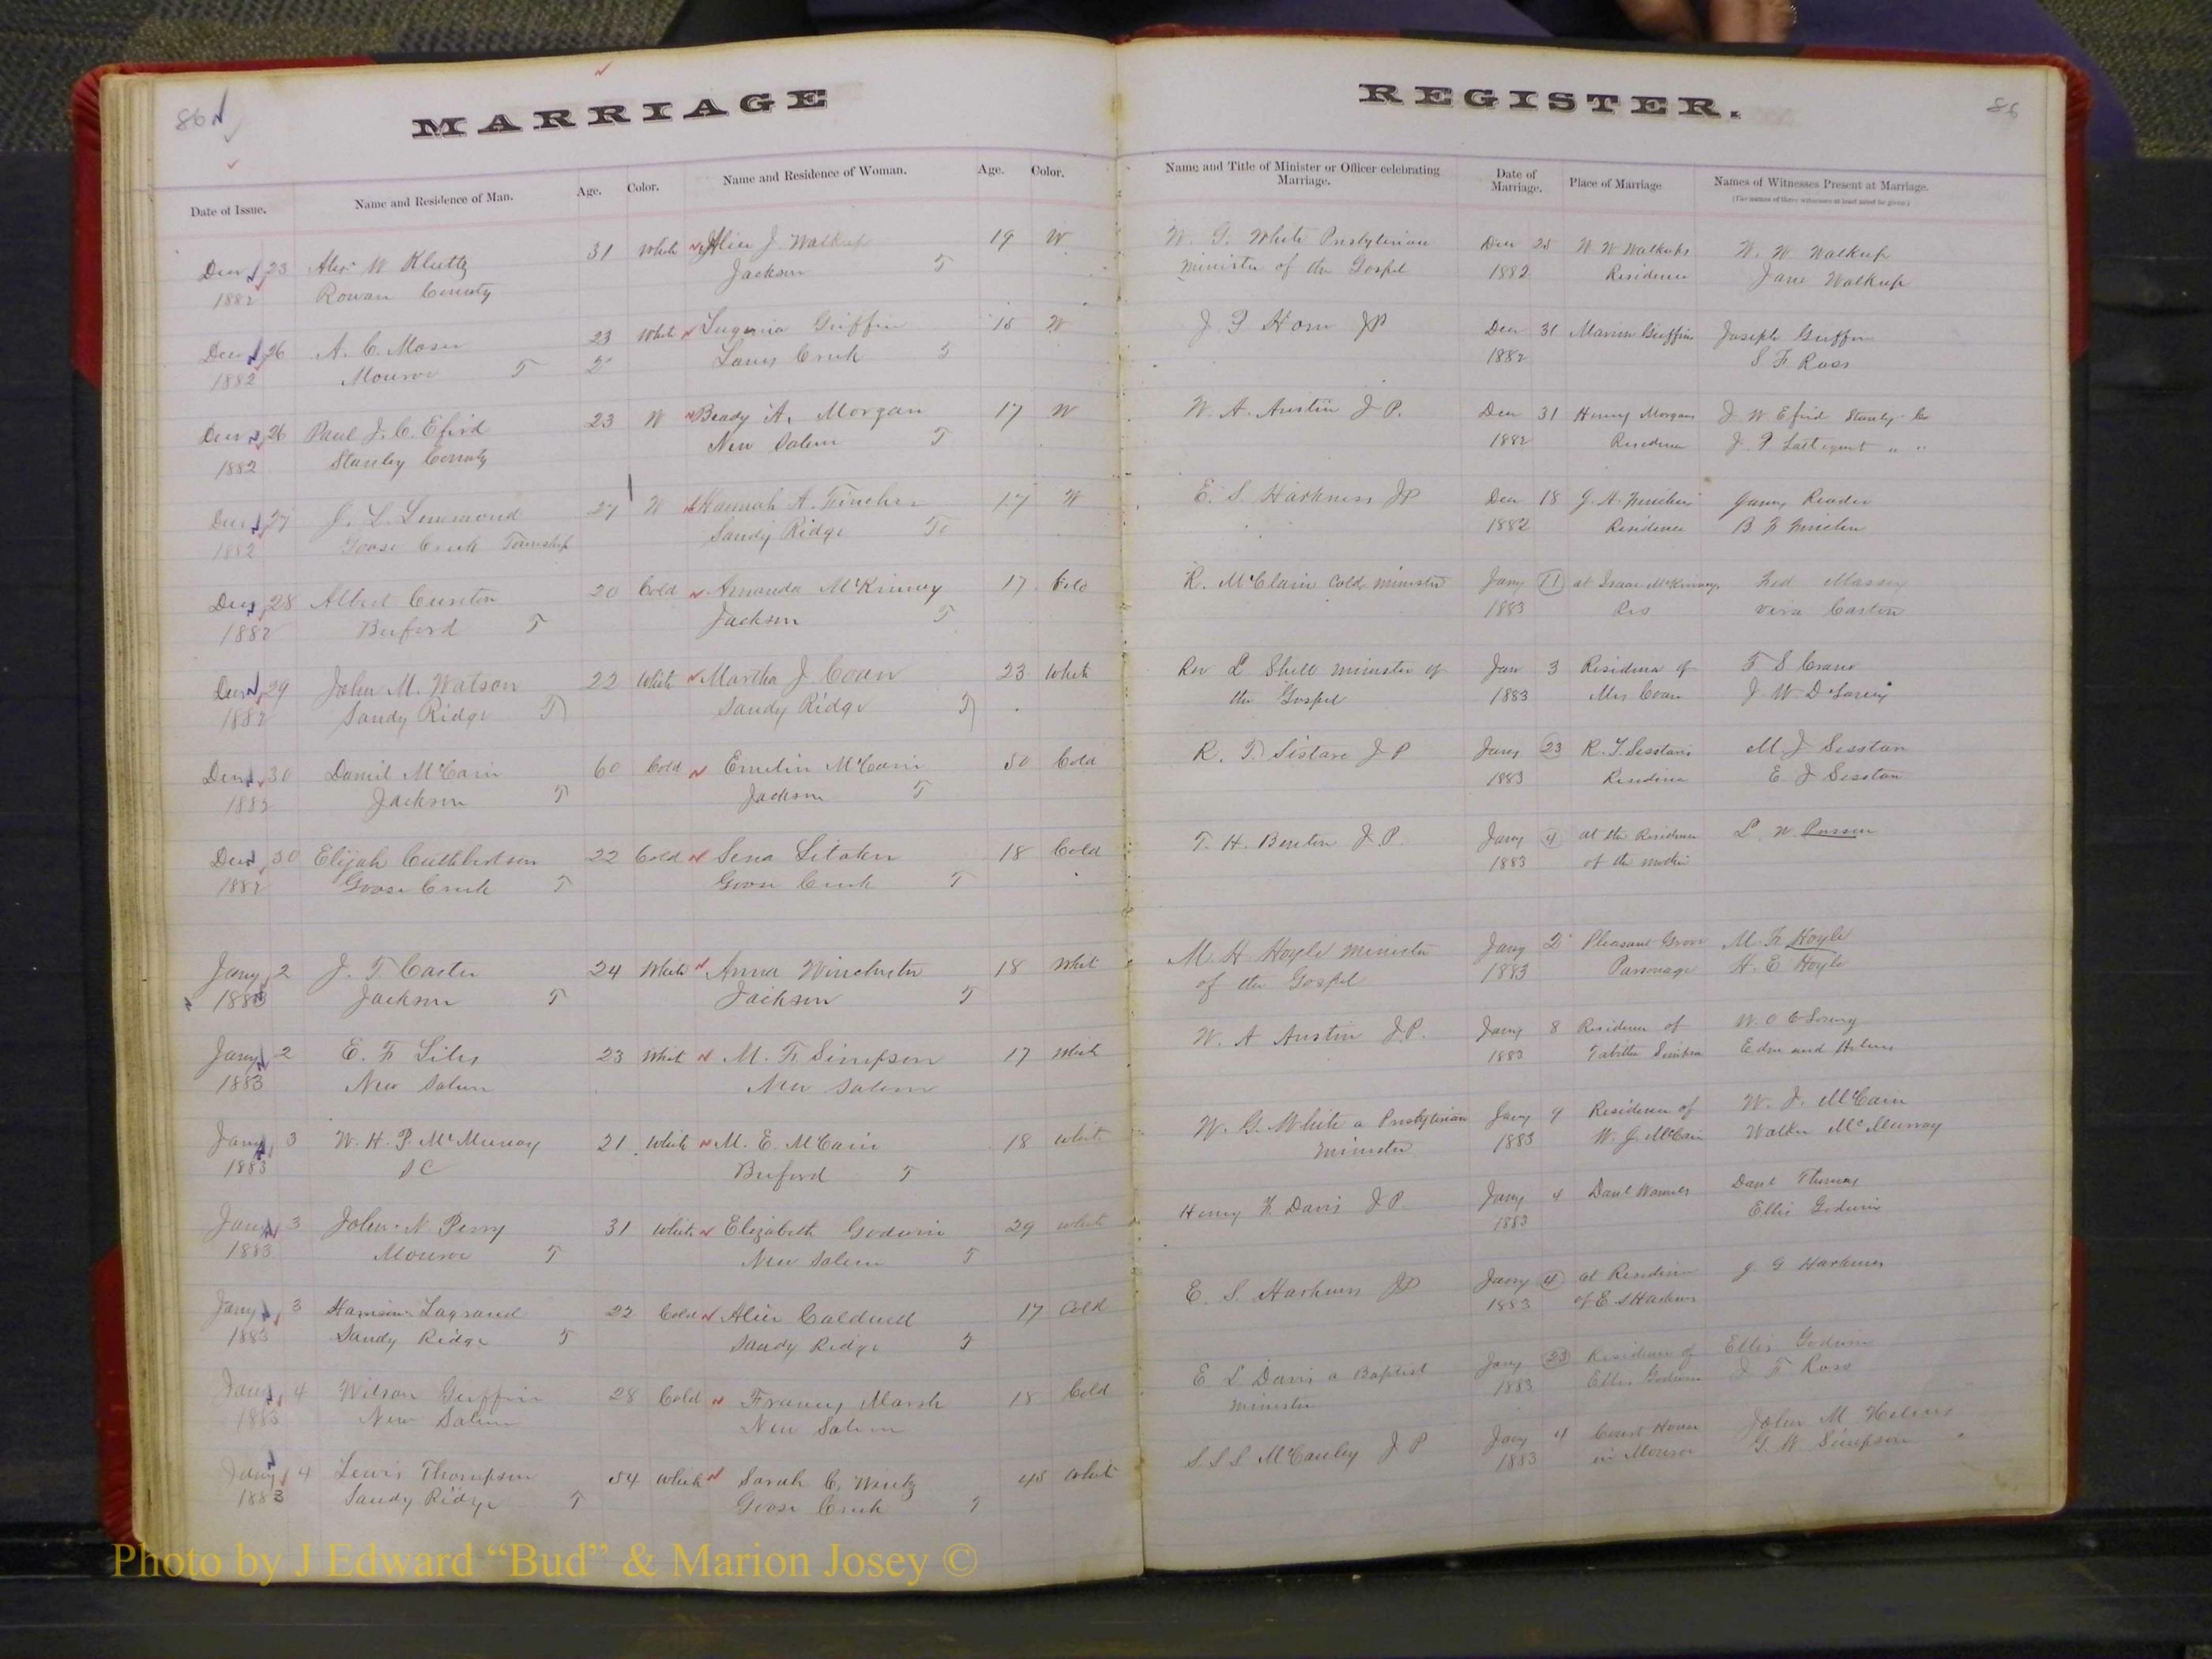 86
MARRIAGE
Date of Issue. Name and Residence of Man. Age. Color. Name and Residence of Woman. Age. Color.
Decr 23 Alex W Kluttz 31 White Alice J. Walkup 19 W
1882 Rowan County Jackson T
Decr 26 A. C. Moser 23 White Eugenia Griffin 18 W
1882 Monroe T Lanes Creek T
Decr 26 Paul J. C. Efird 23 W Beady A. Morgan 17 W
1882 Stanley County New Salem T
Decr 27 J. L. Lemmond 27 W Hannah A. Fincher 17 W
1882 Goose Creek Township Sandy Ridge
Decr 28 Albert Cureton 20 Cold Amanda McKinney 17 Cold
1882 Buford T Jackson T
Decr 29 John M. Watson 22 White Martha J. Coan 23 White
1882 Sandy Ridge T Sandy Ridge T
Decr 30 Daniel McCain 60 Cold Emelin McCain 50 Cold
1882 Jackson T Jackson T
Decr 30 Elijah Cuthbertson 22 Cold Sena 18 Cold
1882 Goose Creek T Goose Creek T
Jany 2 J. T. Carter 24 White Anna Winchester 18 Whit
1883 Jackson T Jackson T
Jany 2 E. F. Liles 23 Whit M. F. Simpson 17 White
1883 New Salem New Salem
Jany 3 W. H. P. McMurray 21 White M. E. McCain 18 Whit
1883 SC Buford T
Jany 3 John N Perry 31 White Elizabeth Godwin 29 White
1883 Monroe T New Salem T
Jany 3 Lagrand 22 Cold Alice Caldwell 17 Cold
1883 Sandy Ridge T Sandy Ridge T
Jany 4 Wilson Griffin 28 Cold Frances Marsh 18 Cold
1883 New Salem New Salem
Jany 4 Lewis Thompson 54 White Sarah C. Wentz 45 White
1883 Sandy Ridge T Goose Creek T
REGISTER.
86
Name and Title of Minister or Officer celebrating Marriage. Date of Marriage. Place of Marriage Names of Witnesses Present at Marriage.
(The names of three witnesses at least must be given.)
W. G. White Presbyterian Decr 25 W W Walkups W. W Walkup
minister of the Gospel 1882 Residence Jane Walkup
J. P Horn JP Decr 31 Marion Griffins Joseph Griffin
1882 S F Ross
W. A. Austin J P. Decr 31 Henry Morgans J W Efird Stanly Co
1882 Residence J. P " "
E. S. Harkness JP Decr 18 Reader
1882 Residence
R. McClain Cold minister Jany 11 at Isaac McKinneys Massey
1883 Res
Rev L Shell minister of Jan 3 Residence of T S Crane
the Gospel 1883 Mrs Coan J W
R. T. Sistare J P Jany 23 R. T. Residence M. J Sesston
1883 E J Sesston
T. H. Benton J. P. Jany 4 at the Residence L W
1883 of the
M. H Hoyle minister Jany 2 Pleasant Grove M. F. Hoyle
of the Gospel 1883 Parsonage H. E Hoyle
W. A Austin J.P. Jany 8 Residence of
1883 Tabitha Simpson
W. G. White a Presbyterian Jany 4 Residence of W. J. McCain
minister 1883 W. J. McCain Walker McMurray
Henry Davis J P. Jany 4 Danl Danl Thomas
1883 Ellis Godwin
E. S. Harkness JP Jany 4 at Residence J. G Harkness
1883 of E S Harkness
E L Davis a Baptist Jany 23 Residence of Ellis Godwin
minister 1883 Ellis Godwin J F Ross
S. S. S McCauley J P Jany 4 Court House John M Helms
1883 in Monroe G. W Simpson
Photo by J Edward “Bud” & Marion Josey ©